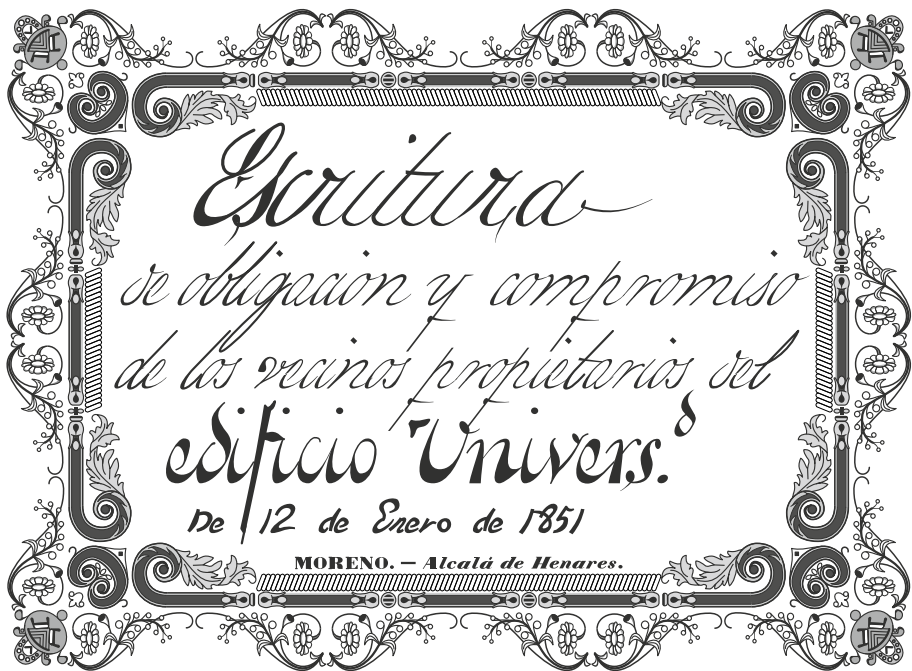 Escritura
de obligación y compromiso
de los vecinos propietarios del
edificio Univers.d
De 12 de Enero de 1851
MORENO. — Alcalá de Henares.